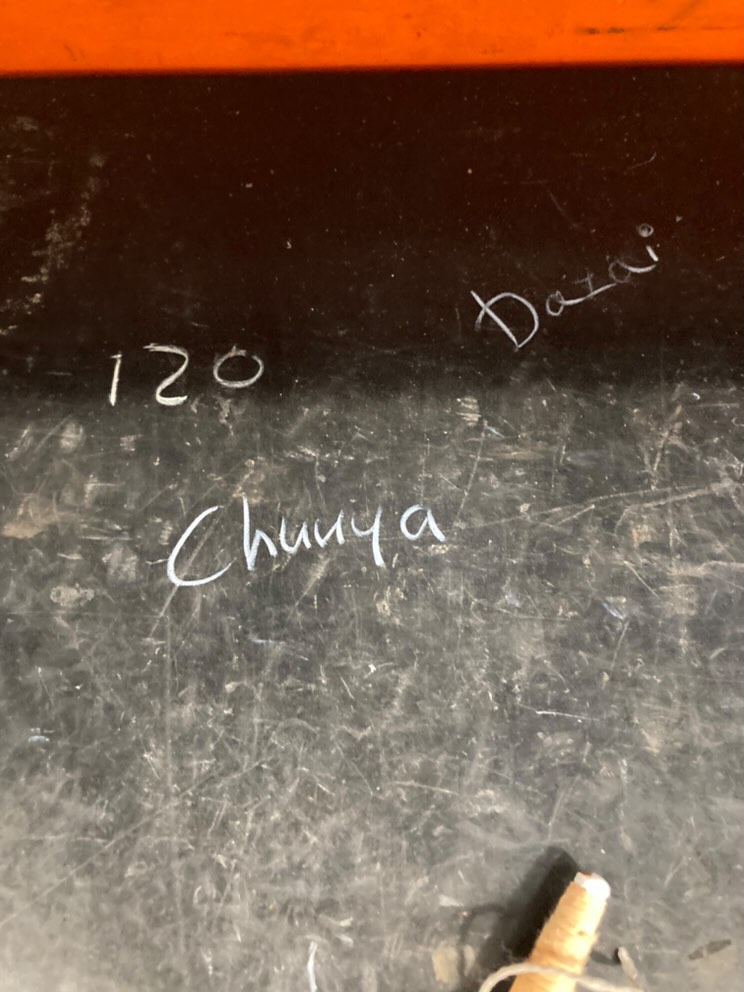 Dazai
120
Chuuya